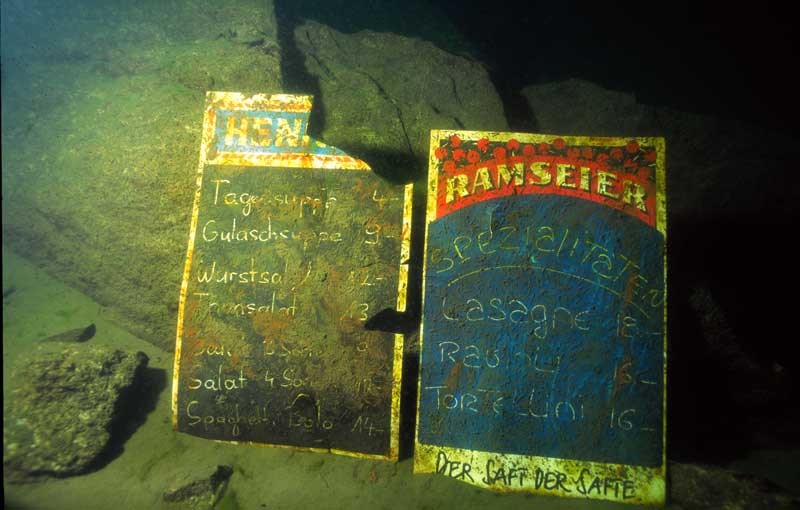 HEN
Tagessuppe 4.-
Gulaschsuppe 9.-
Wurstsal 12.-
Thonsalat 13
Salat 3 9
Salat 4
Spaghetti Bolo 14.-
RAMSEIER
SPEZIALITÄTEN
Lasagne 18.-
Ravioli
TORTELLINI 16.-
DER SAFT DER SÄFTE